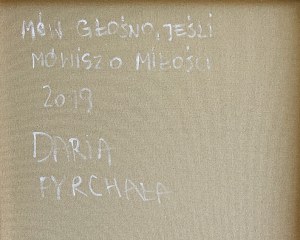 MÓW GŁOŚNO, JEŚLI
MÓWISZ O MIŁOŚCI
2019
DARIA
PYRCHAŁA